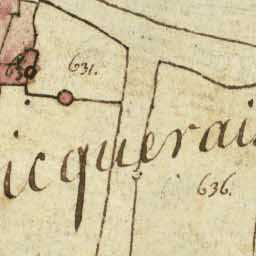 630
631.
icquerai
636.